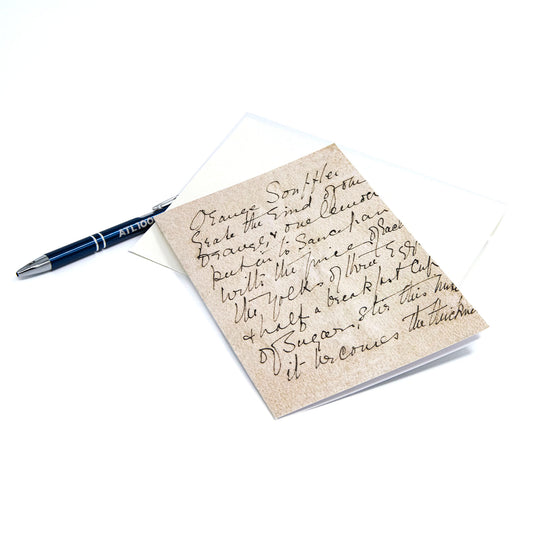 ATL100
Orange Souffler
Grate the rind of one
Orange, & one lemon
put in to Saucepan
with the juice of
the yolks of three Eggs
& half a breakfast Cup
of Sugar, Stir this
it becomes the thickne